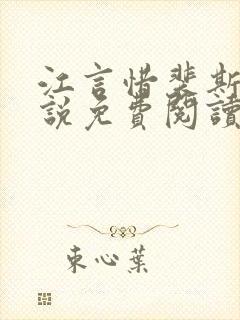 江言惜裴斯
說免費閱讀
束心葉